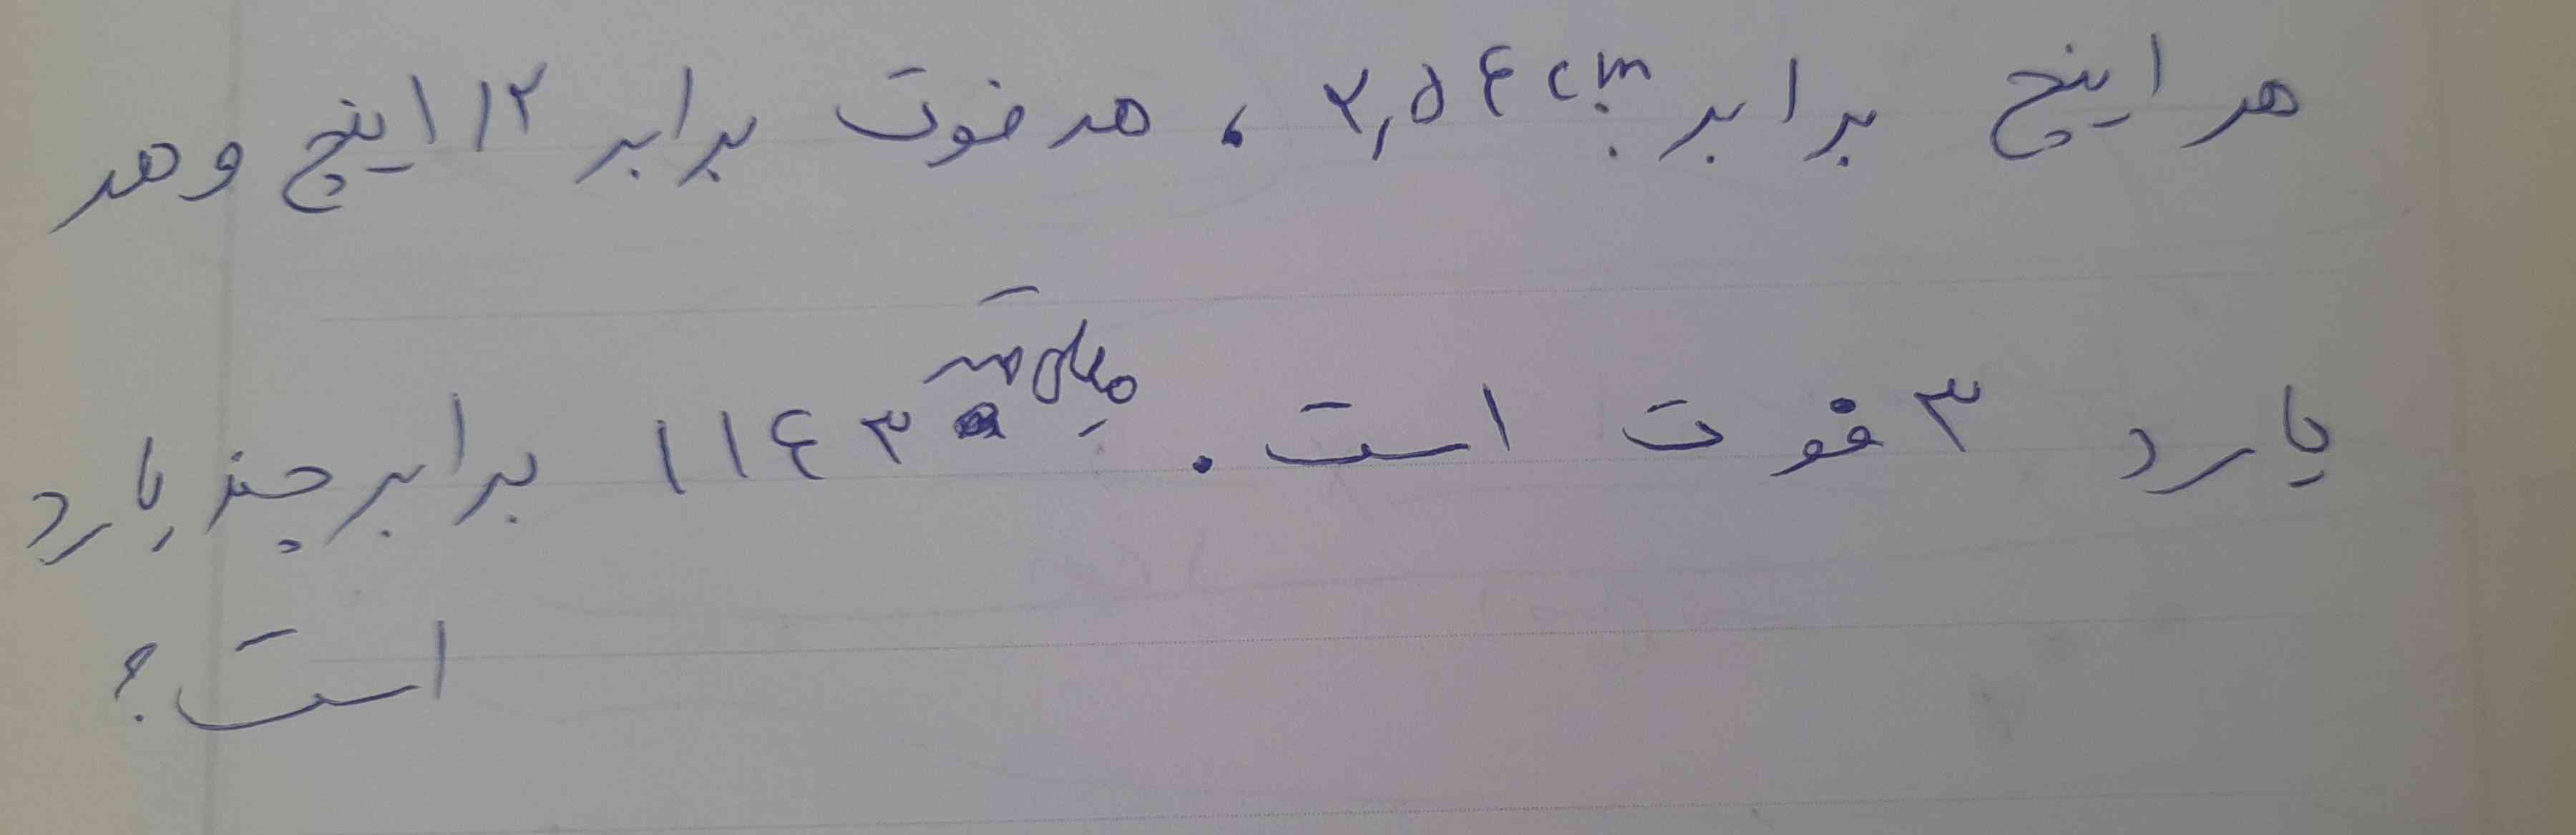 هر اینچ برابر ۲,۵۴ cm، هر فوت برابر ۱۲ اینچ و هر
یارد ۳ فوت است. ۱۱۴۳ برابر چند یارد
است؟